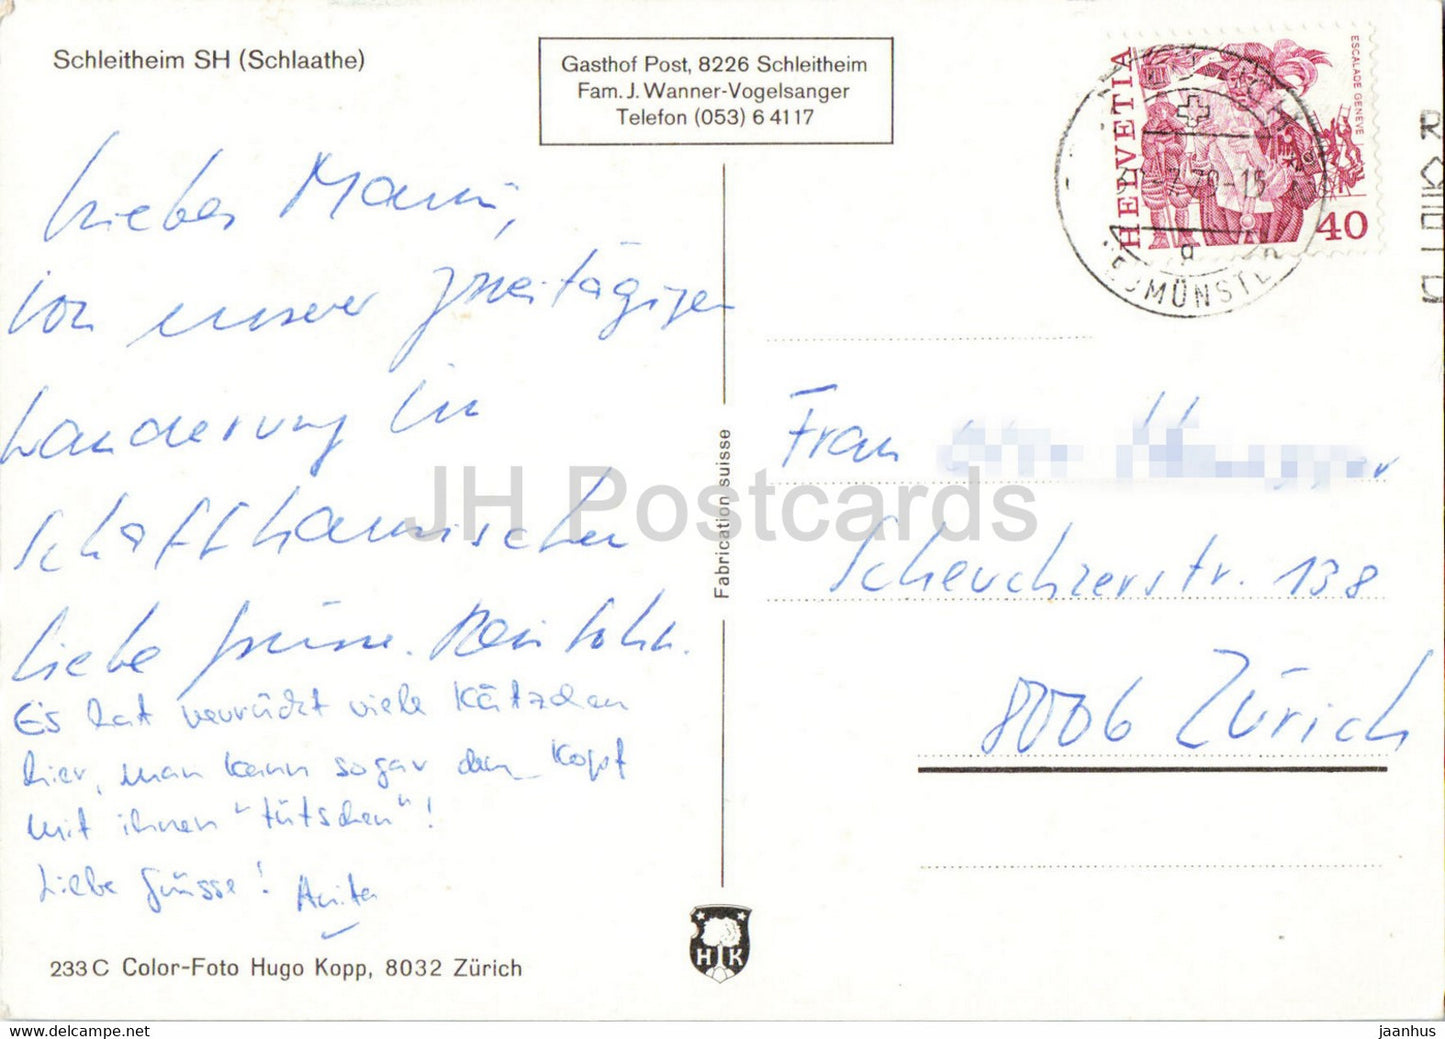 Schleitheim SH (Schlaathe)
Gasthof Post, 8226 Schleitheim
Fam. J. Wanner-Vogelsanger
Telefon (053) 6 41 17
Liebes Mami,
von unserer zweitägigen
Wanderung im
schaffhausischen
liebe Grüsse.
Es hat verrückt viele Kätzchen
hier, man kann sogar den Kopf
mit ihnen "tütschen"!
Liebe Grüsse! Anita
233 C Color-Foto Hugo Kopp, 8032 Zürich
Fabrication suisse
H K
HELVETIA
ESCALADE GENÈVE
40
Frau
Scheuchzerstr. 138
8006 Zürich
JH Postcards
https://www.delcampe.net
jaanhus